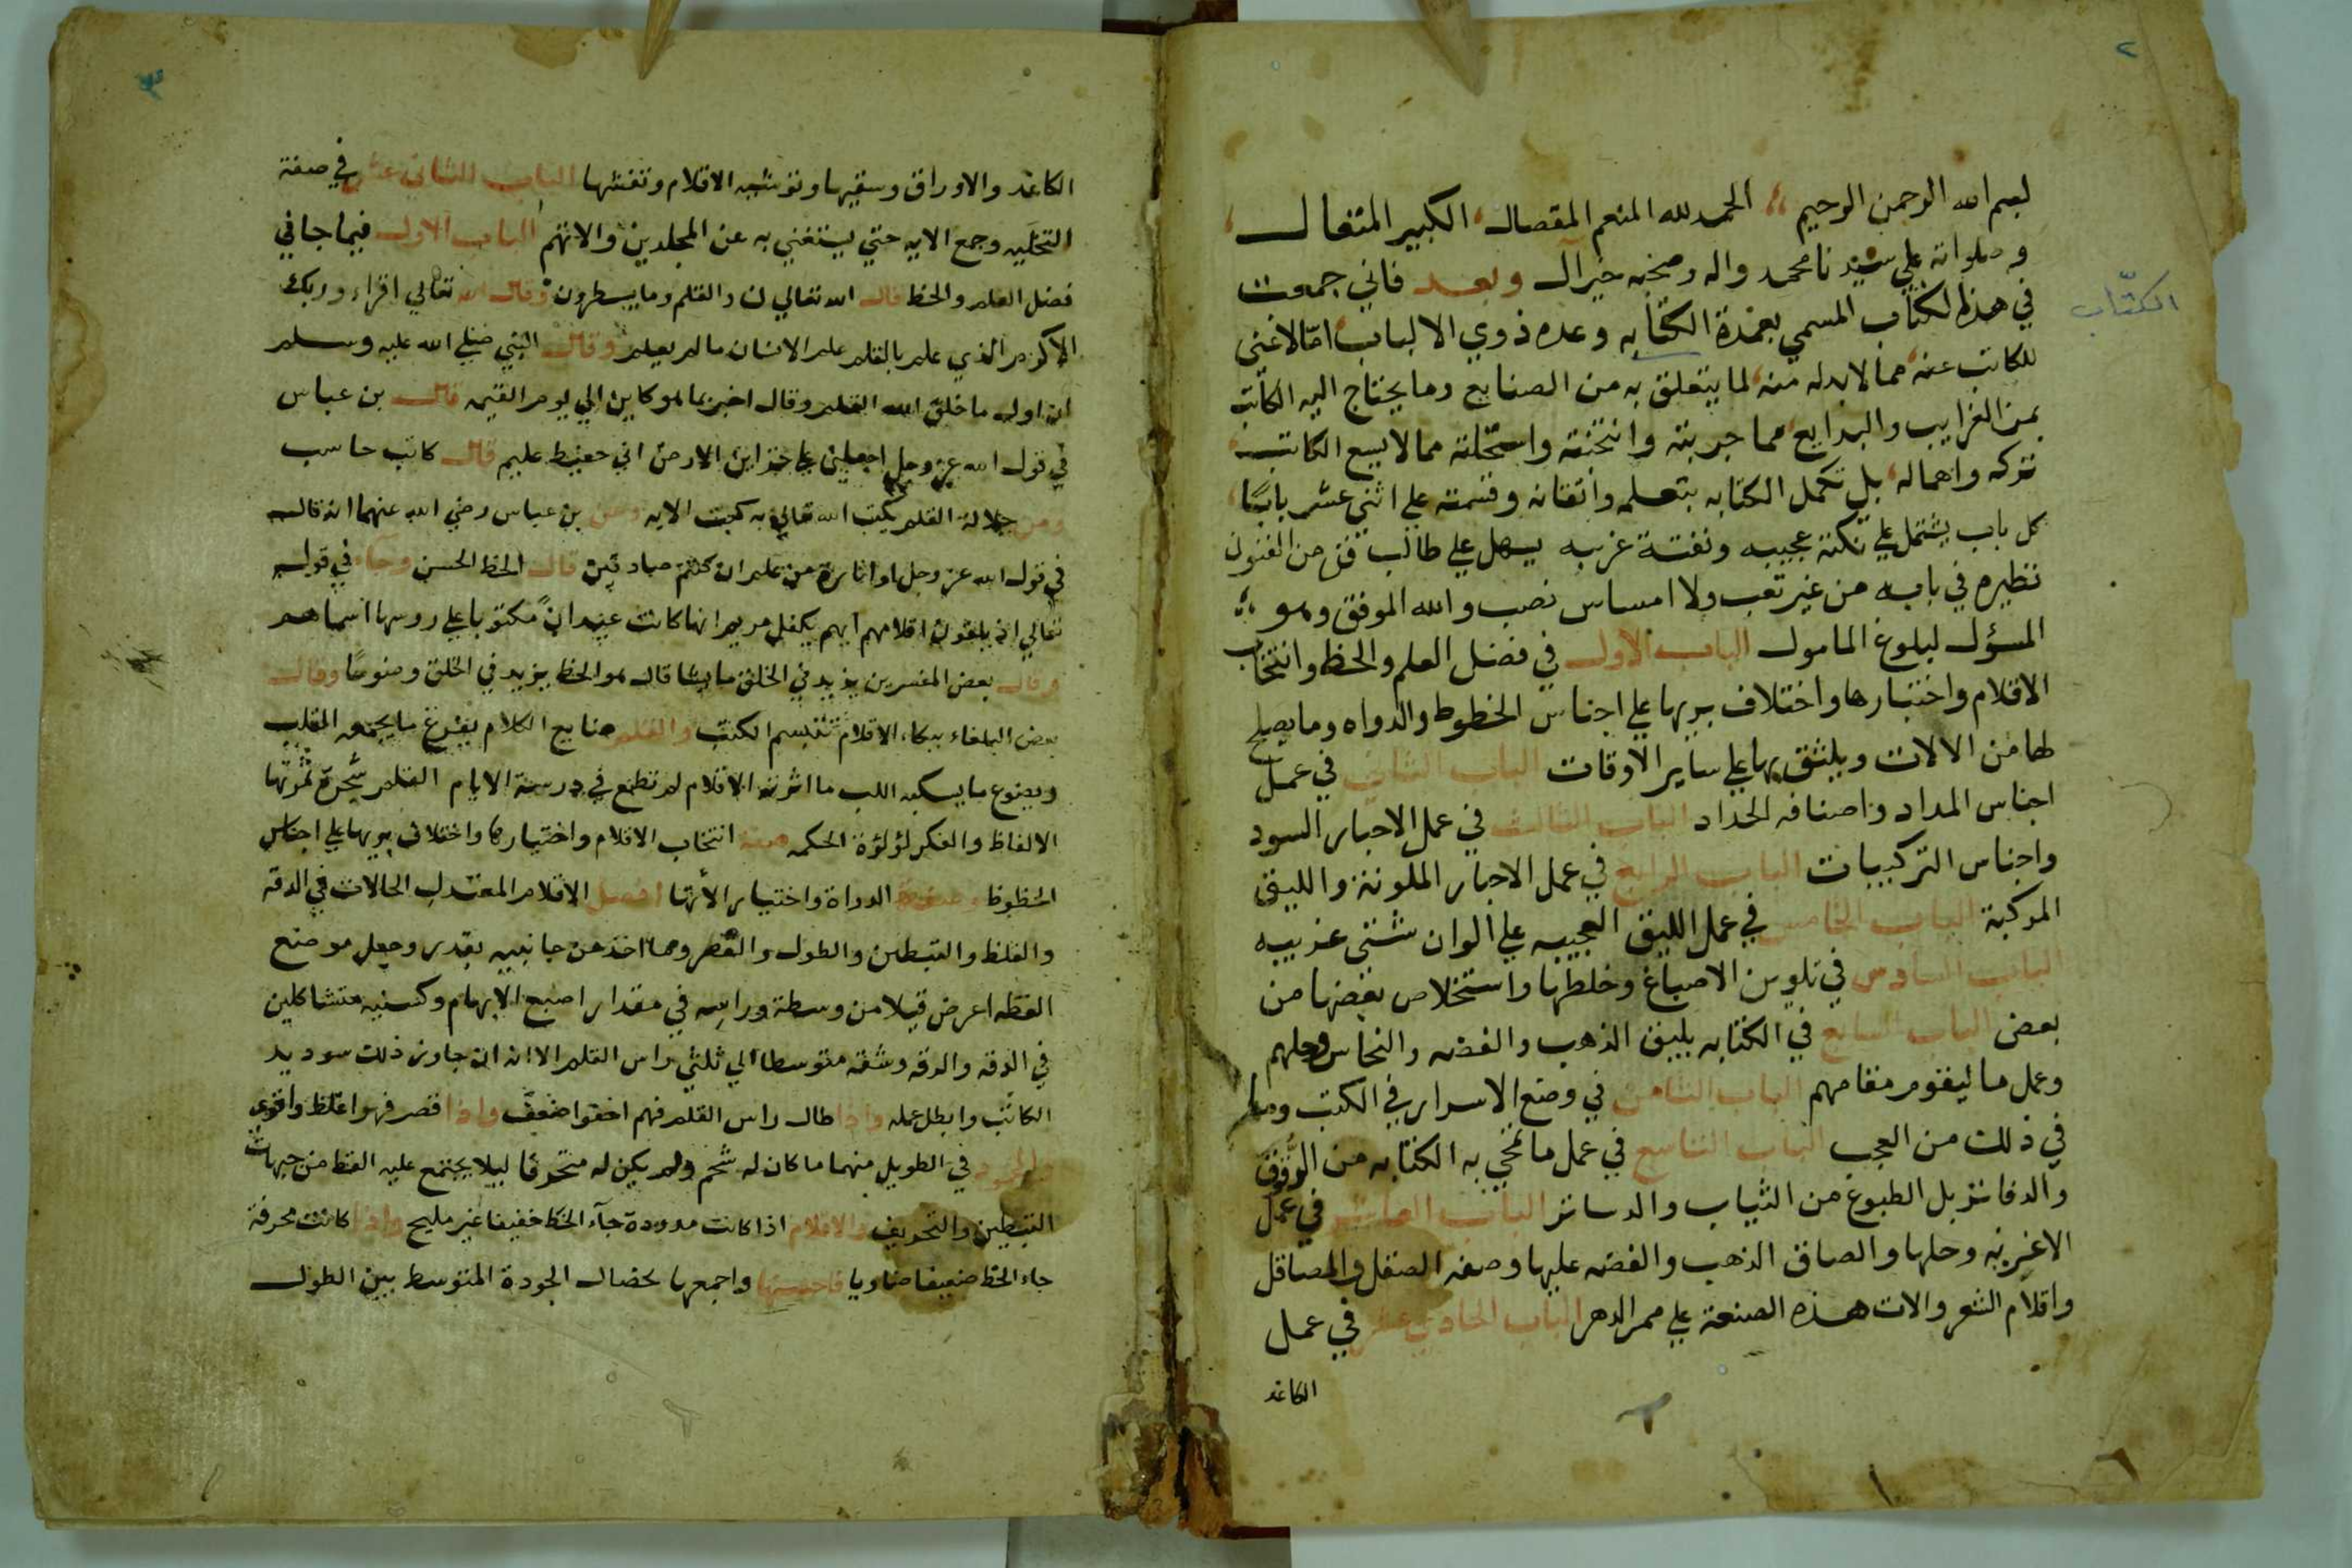 ٢
بسم الله الرحمن الرحيم الحمد لله المنعم المفضال الكبير المتعال
وصلواته علي سيدنا محمد واله وصحبه خير آل وبعد فاني جمعت
الكتّاب
في هذا الكتاب المسمي بعمدة الكتابه وعده ذوي الالباب امّا لاغني
للكاتب عنه مما لابد له منه لما يتعلق به من الصنايع وما يحتاج اليه الكاتب
من الغرايب والبدايع مما جربته وانتخبته واستحليته مما لا يسع الكاتب
تركه واهماله بل تكمل الكتابه بتعلمه واتقانه وقسمته علي اثني عشر بابًا
كل باب يشتمل علي نكتة عجيبه ونفتة غربيه يسهل علي طالب فن من الفنون
نظيره في بابه من غير تعب ولا امساس نصب والله الموفق وهو
المسؤل لبلوغ المامول الباب الاول في فضل العلم والخط وانتخاب
الاقلام واختبارها واختلاف بريها علي اجناس الخطوط والدواه وما يصلح
لها من الالات ويلتثق بها علي ساير الاوقات الباب الثاني في عمل
اجناس المداد واصنافه الحداد الباب الثالث في عمل الاحبار السود
واجناس التركيبات الباب الرابع في عمل الاحبار الملونة والليق
المركبة الباب الخامس في عمل الليق العجيبه علي الوان شتي غريبه
الباب السادس في تلوين الاصباغ وخلطها واستخلاص بعضها من
بعض الباب السابع في الكتابه بليق الذهب والفضه والنحاس وحلهم
وعمل ما ليقوم مقامهم الباب الثامن في وضع الاسرار في الكتب وما
في ذلك من العجب الباب التاسع في عمل ما تمحي به الكتابه من الرقوق
والدفاتر بل الطبوع من الثياب والدساتر الباب العاشر في عمل
الاغريه وحلها والصاق الذهب والفضه عليها وصفه الصقل والمصاقل
واقلام الشعر والات هذه الصنعة علي ممر الدهر الباب الحادي عشر في عمل
الكاغد
٣
الكاغد والاوراق وسقيها وتوشيه الاقلام ونقشها الباب الثاني عشر في صفة
التحليه وجمع الايه حتي يستغني به عن المجلدين والاتهم الباب الاول فيما جا في
فضل القلم والخط قال الله تعالي ن والقلم وما يسطرون وقال الله تعالي اقراء وربك
الاكرم الذي علم بالقلم علم الانسان مالم يعلم وقال النبي صلي الله عليه وسلم
ان اول ما خلق الله القلم وقال اخبر بما هو كاين الي يوم القيمه قال بن عباس
في قول الله عز وجل اجعلني علي خزاين الارض اني حفيظ عليم قال كاتب حاسب
ومن جلالة القلم يكتب الله تعالي به كتبت الايه وعن بن عباس رضي الله عنهما انه قال
في قول الله عز وجل او اثارة من علم ان كنتم صادقين قال الخط الحسن وجآء في قوله
تعالي اذ يلقون اقلامهم ايهم يكفل مريم انها كانت عيدانً مكتوبا علي روسها اسماهم
وقال بعض المفسرين يزيد في الخلق ما يشا قال هو الخط يزيد في الخلق وضوحًا وقال
بعض البلغاء ببكاء الاقلام تتبسم الكتب والقلم صايغ الكلام يفرغ ما يجمعه القلب
ويصوغ ما يسكبه اللب ما اثرته الاقلام لم تطمع في درسه الايام القلم شجرة ثمرتها
الالفاظ والفكر لؤلؤة الحكمه صفة انتخاب الاقلام واختيارها واختلاف بريها علي اجناس
الخطوط وصفة الدواة واختيار الأتها افضل الاقلام المعتدل الحالات في الدقه
والغلظ والقبطين والطول والقصر ومما اخذ من جانبيه بقدر وجعل موضع
القطه اعرض قيلا من وسطه وراسه في مقدار اصبع الابهام وكسنيه متشاكلين
في الدقه والدقه وشقه متوسطا الي ثلثي راس القلم الا انه ان جاوز ذلك سود يد
الكاتب وابطل عمله واذا طال راس القلم فهم اخفوا ضعف واذا قصر فهو اغلظ واقوي
والمحمود في الطويل منهما ما كان له شحم ولم يكن له متحوفًا ليلا يجتمع عليه القط من جهات
القبطين والتحويف والاقلام اذا كانت مدورة جآء الخط خفيفا غير مليح واذا كانت محرفة
جاء الخط ضعيفا ضاويا فاحسنها واجمعها لخصال الجودة المتوسط بين الطول